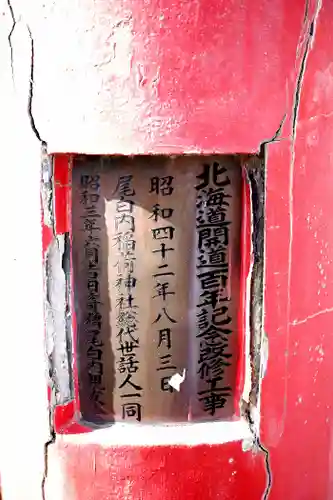 北海道開道百年記念改修工事
昭和四十二年八月三日
尾白内稲荷神社総代世話人一同
昭和三年六月吉日奇進尾白内甲友